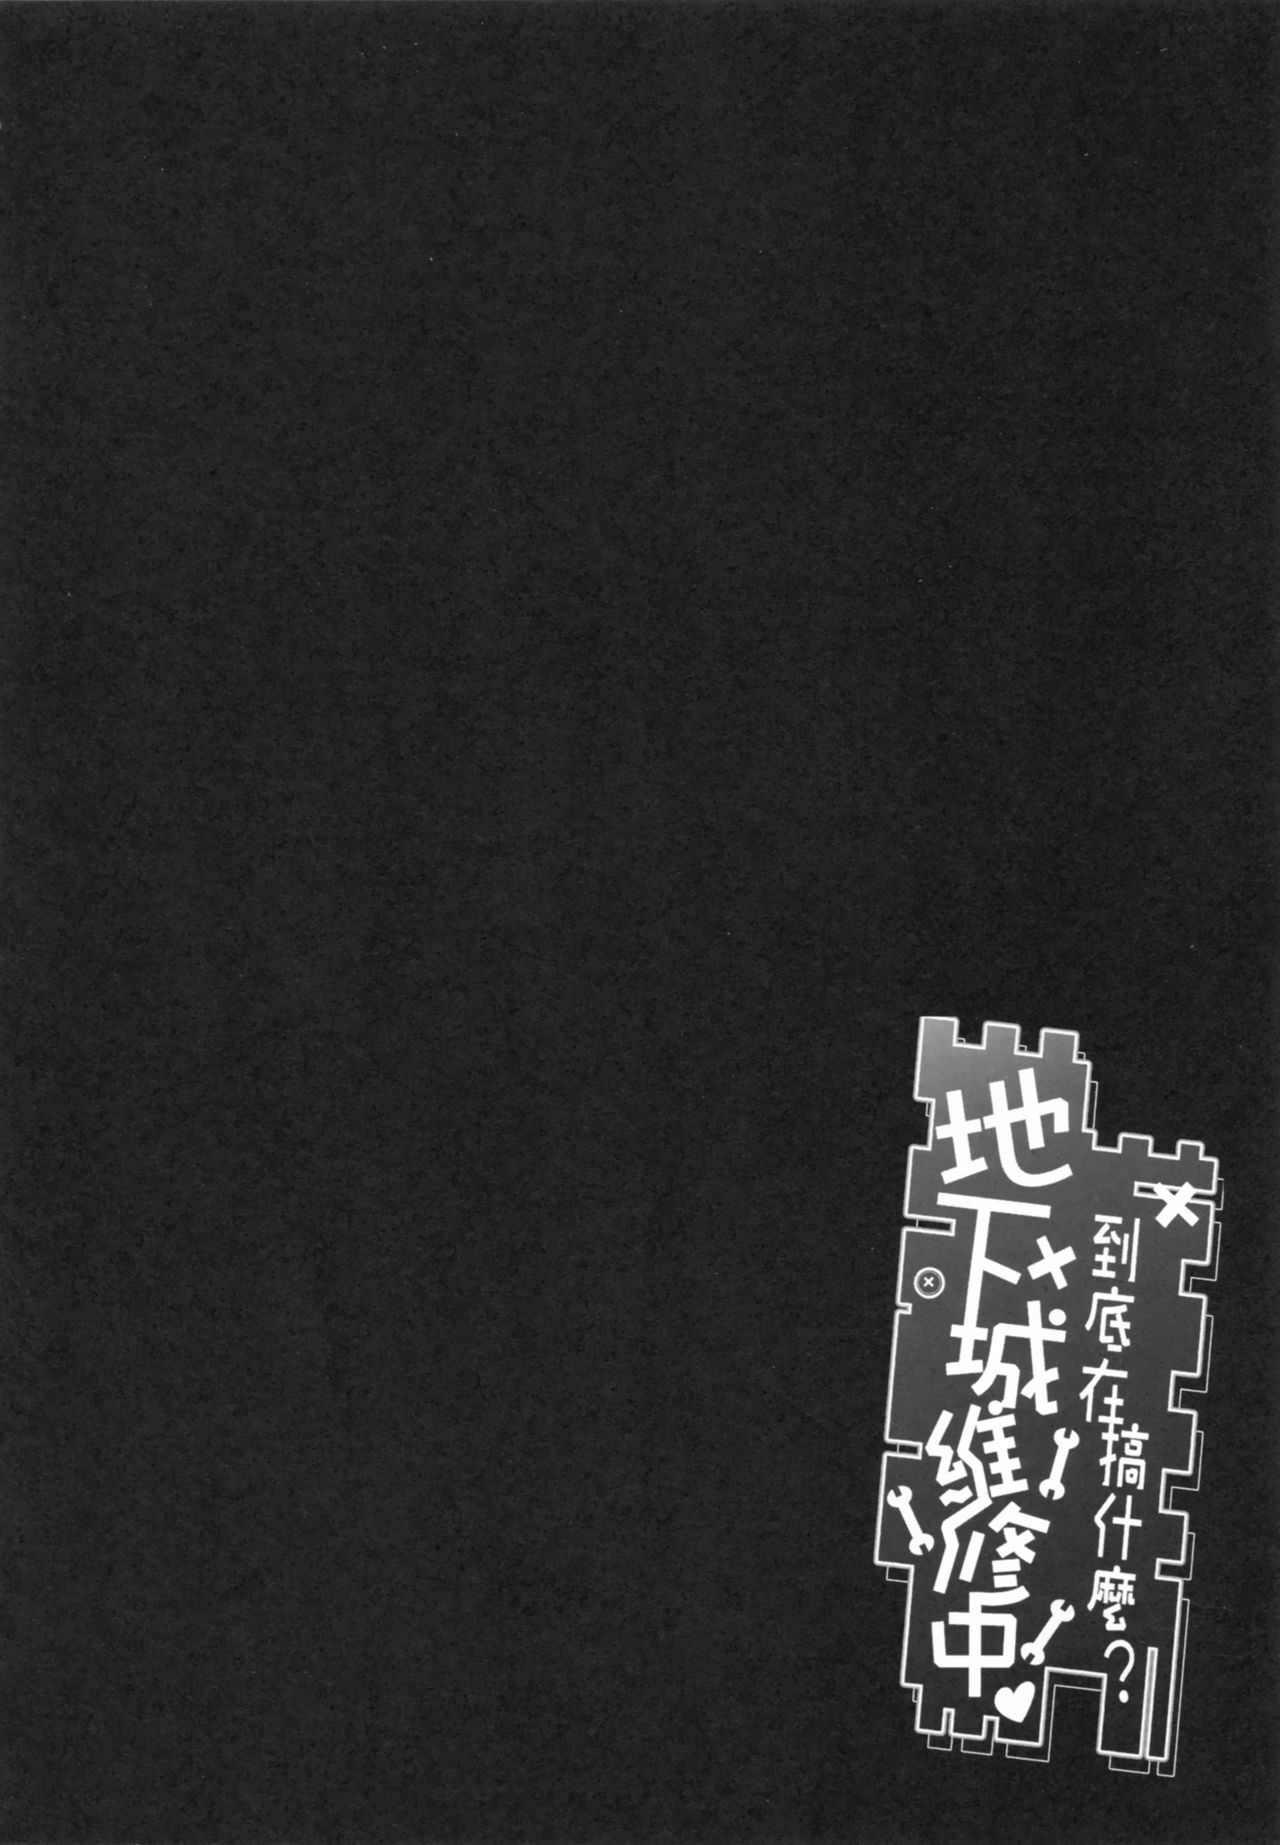 到底在搞什麼?
地下城維修中♥